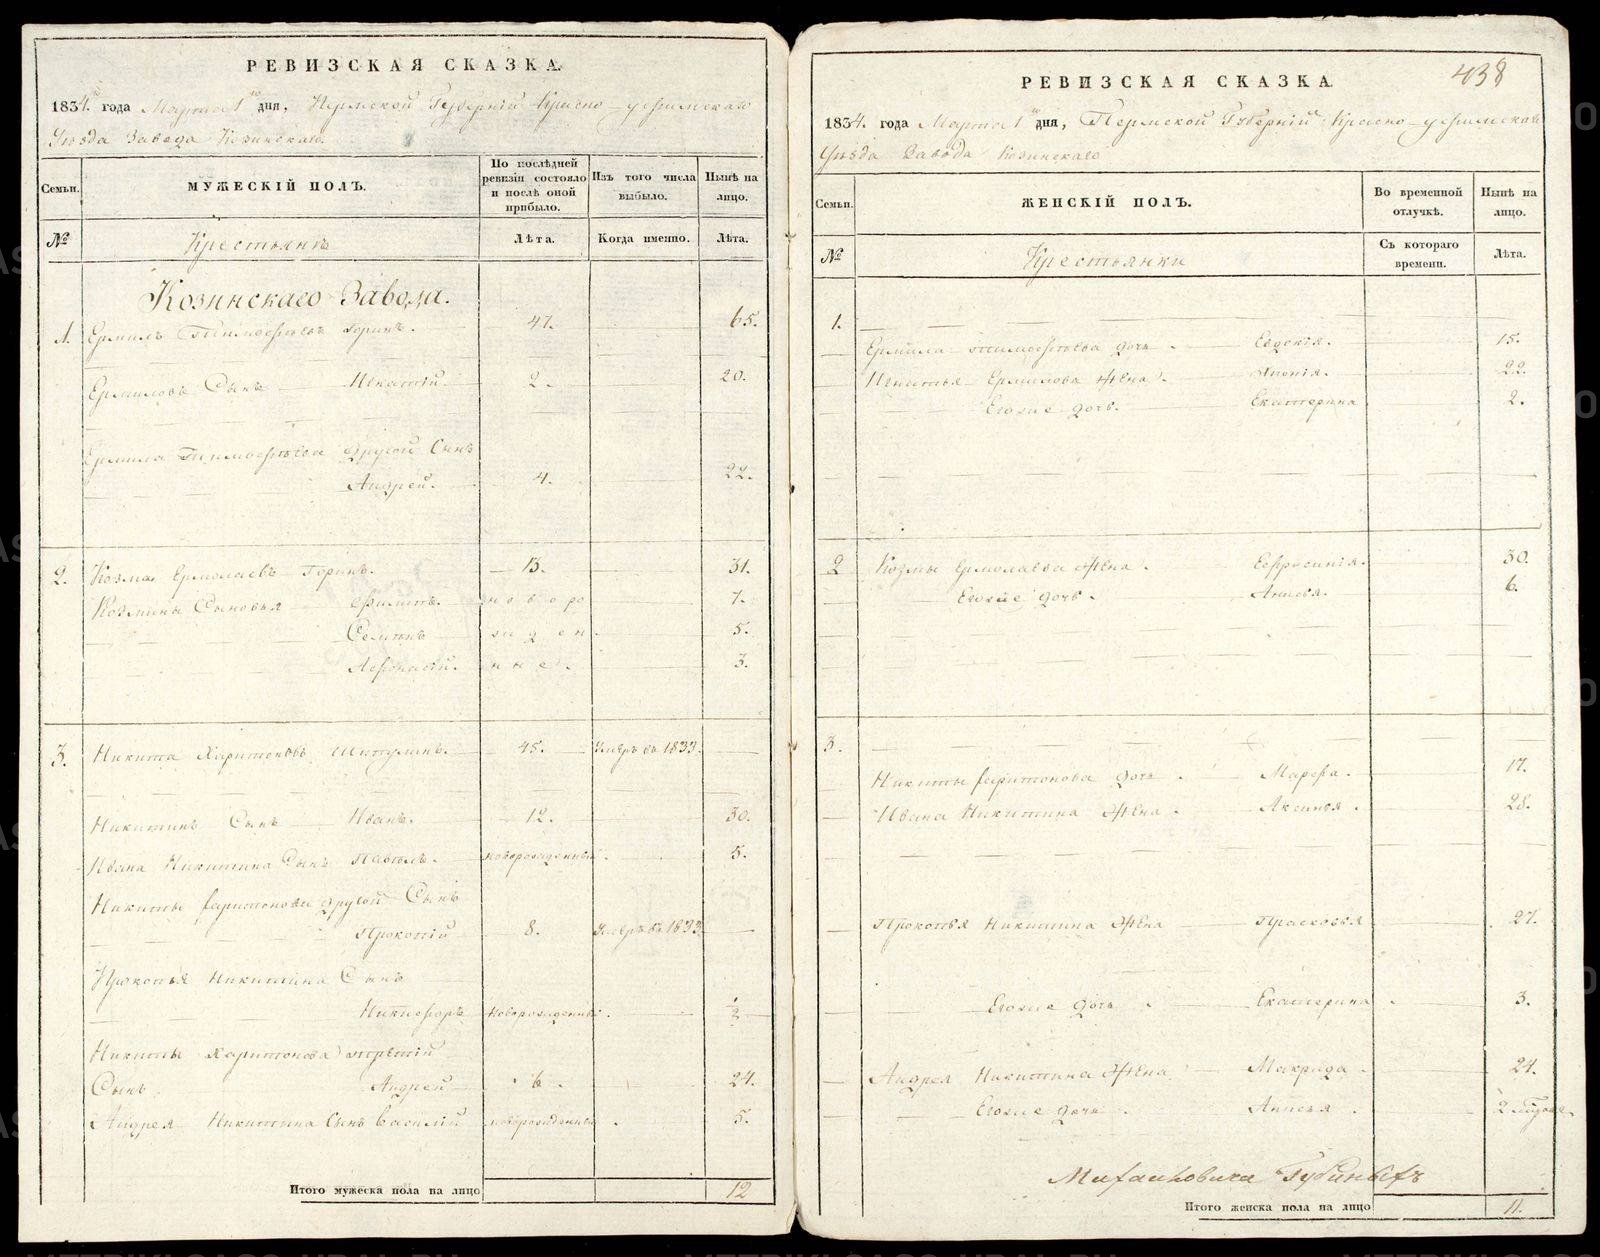 РЕВИЗСКАЯ СКАЗКА.
1834. года Марта 1 дня, Пермской Губерніи Красно-уфимскаго
Уѣзда Завода Козинскаго
Семьи.
МУЖЕСКІЙ ПОЛЪ.
По послѣдней ревизіи состояло и послѣ оной прибыло.
Изъ того числа выбыло.
Нынѣ на лицо.
№
Крестьянъ
Лѣта.
Когда именно.
Лѣта.
Козинскаго Завода.
1. Ермилъ Тимофѣевъ Горинъ. 47. 65.
Ермиловъ Сынъ Игнатій 2. 20.
Ермила Тимофѣева другой Сынъ
Андрей. 4. 22.
2. Козма Ермолаевъ Горинъ. 13. 31.
Козмины Сыновья Филипъ. новоро 7.
Семенъ жден 5.
Афонасій. ные. 3.
3. Никита Харитоновъ 45. Умеръ въ 1833.
Никитинъ Сынъ Иванъ. 12. 30.
Ивана Никитина Сынъ Павелъ. новорожденный. 5.
Никиты Харитонова другой Сынъ
Прокопій 8. Умеръ въ 1833
Прокопья Никитина Сынъ
Никифоръ новорожденный. ½
Никиты Харитонова третій
Сынъ Андрей 6. 24.
Андрея Никитина Сынъ Василій новорожденный. 5.
Итого мужеска пола на лицо 12
438
РЕВИЗСКАЯ СКАЗКА.
1834. года Марта 1 дня, Пермской Губерніи Красно-уфимскаго
Уѣзда Завода Козинскаго
Семьи.
ЖЕНСКІЙ ПОЛЪ.
Во временной отлучкѣ.
Нынѣ на лицо.
№
Крестьянки
Съ котораго времени.
Лѣта.
1.
Ермила Тимофѣева дочь Евдокія. 15.
Игнатья Ермилова Жена. 22.
Егоже дочь. Екатерина 2.
2 Козмы Ермолаева Жена. Евфросинія. 30.
Егоже дочь. Анисья. 6.
3.
Никиты Харитонова дочь Марфа. 17.
Ивана Никитина Жена Аксинья. 28.
Прокопья Никитина Жена Прасковья 27.
Егоже дочь Екатерина 3.
Андрея Никитина Жена Макрида 24.
Егоже дочь Анисья 2
Михайловича Губиныхъ
Итого женска пола на лицо 11.